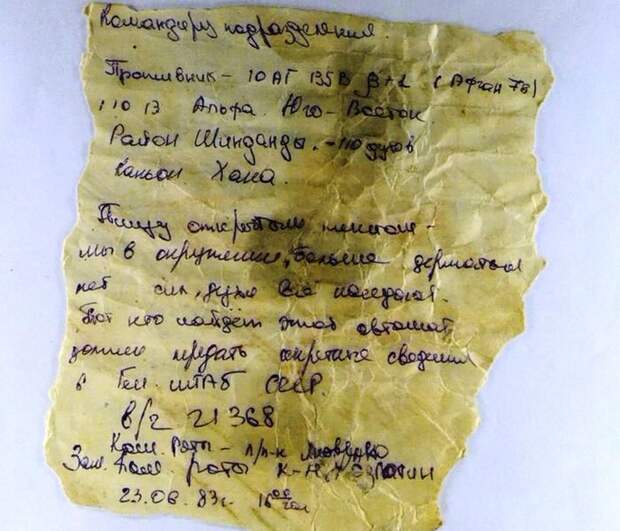 Командиру подразделения.
Противник - 10 АГ 135В (Афган 78)
110 13 Альфа. Юго-Восток.
Район Шинданды. - 110 духов
Каньон Хана.
Пишу открытым текстом -
мы в окружении, больше держаться
нет сил, духи все наседают.
Тот кто найдёт этот автомат
должен передать секретные сведения
в Ген. штаб СССР.
в/ч 21368
Ком. Роты - п/п-к
Зам. Ком. роты к-н
23.06.83г. 16 00